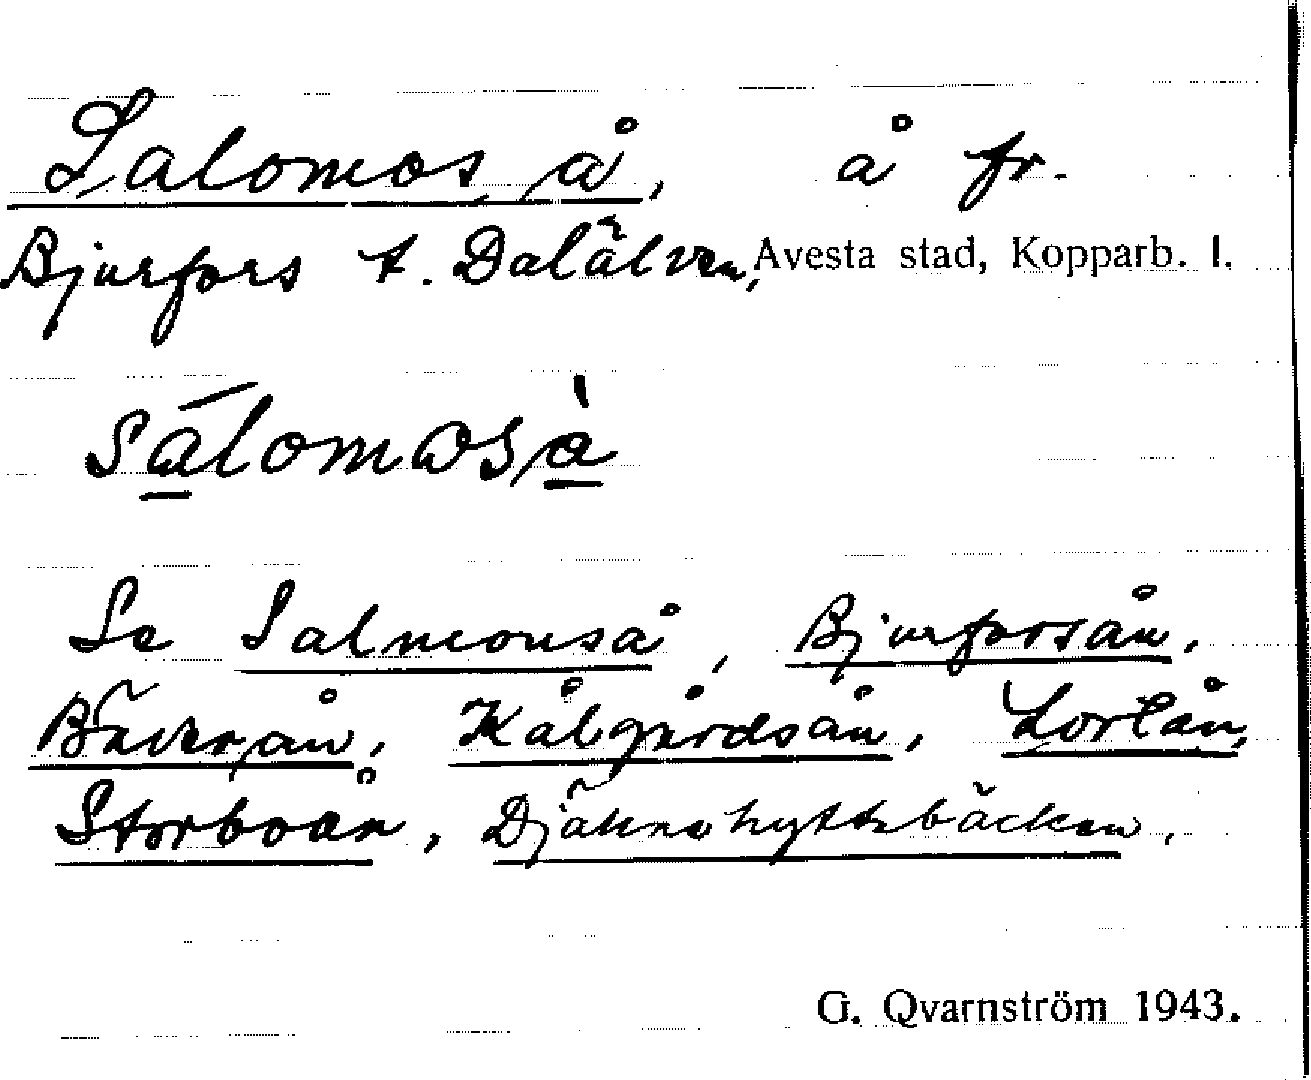 Salomos å, å fr.
Bjurfors t. Dalälven, Avesta stad, Kopparb. l.
sálomosà
Se Salmonså, Bjurforsån,
Bäverån, Kålgårdsån, Lortån,
Storboån, Djäknehyttebäcken,
G. Qvarnström 1943.